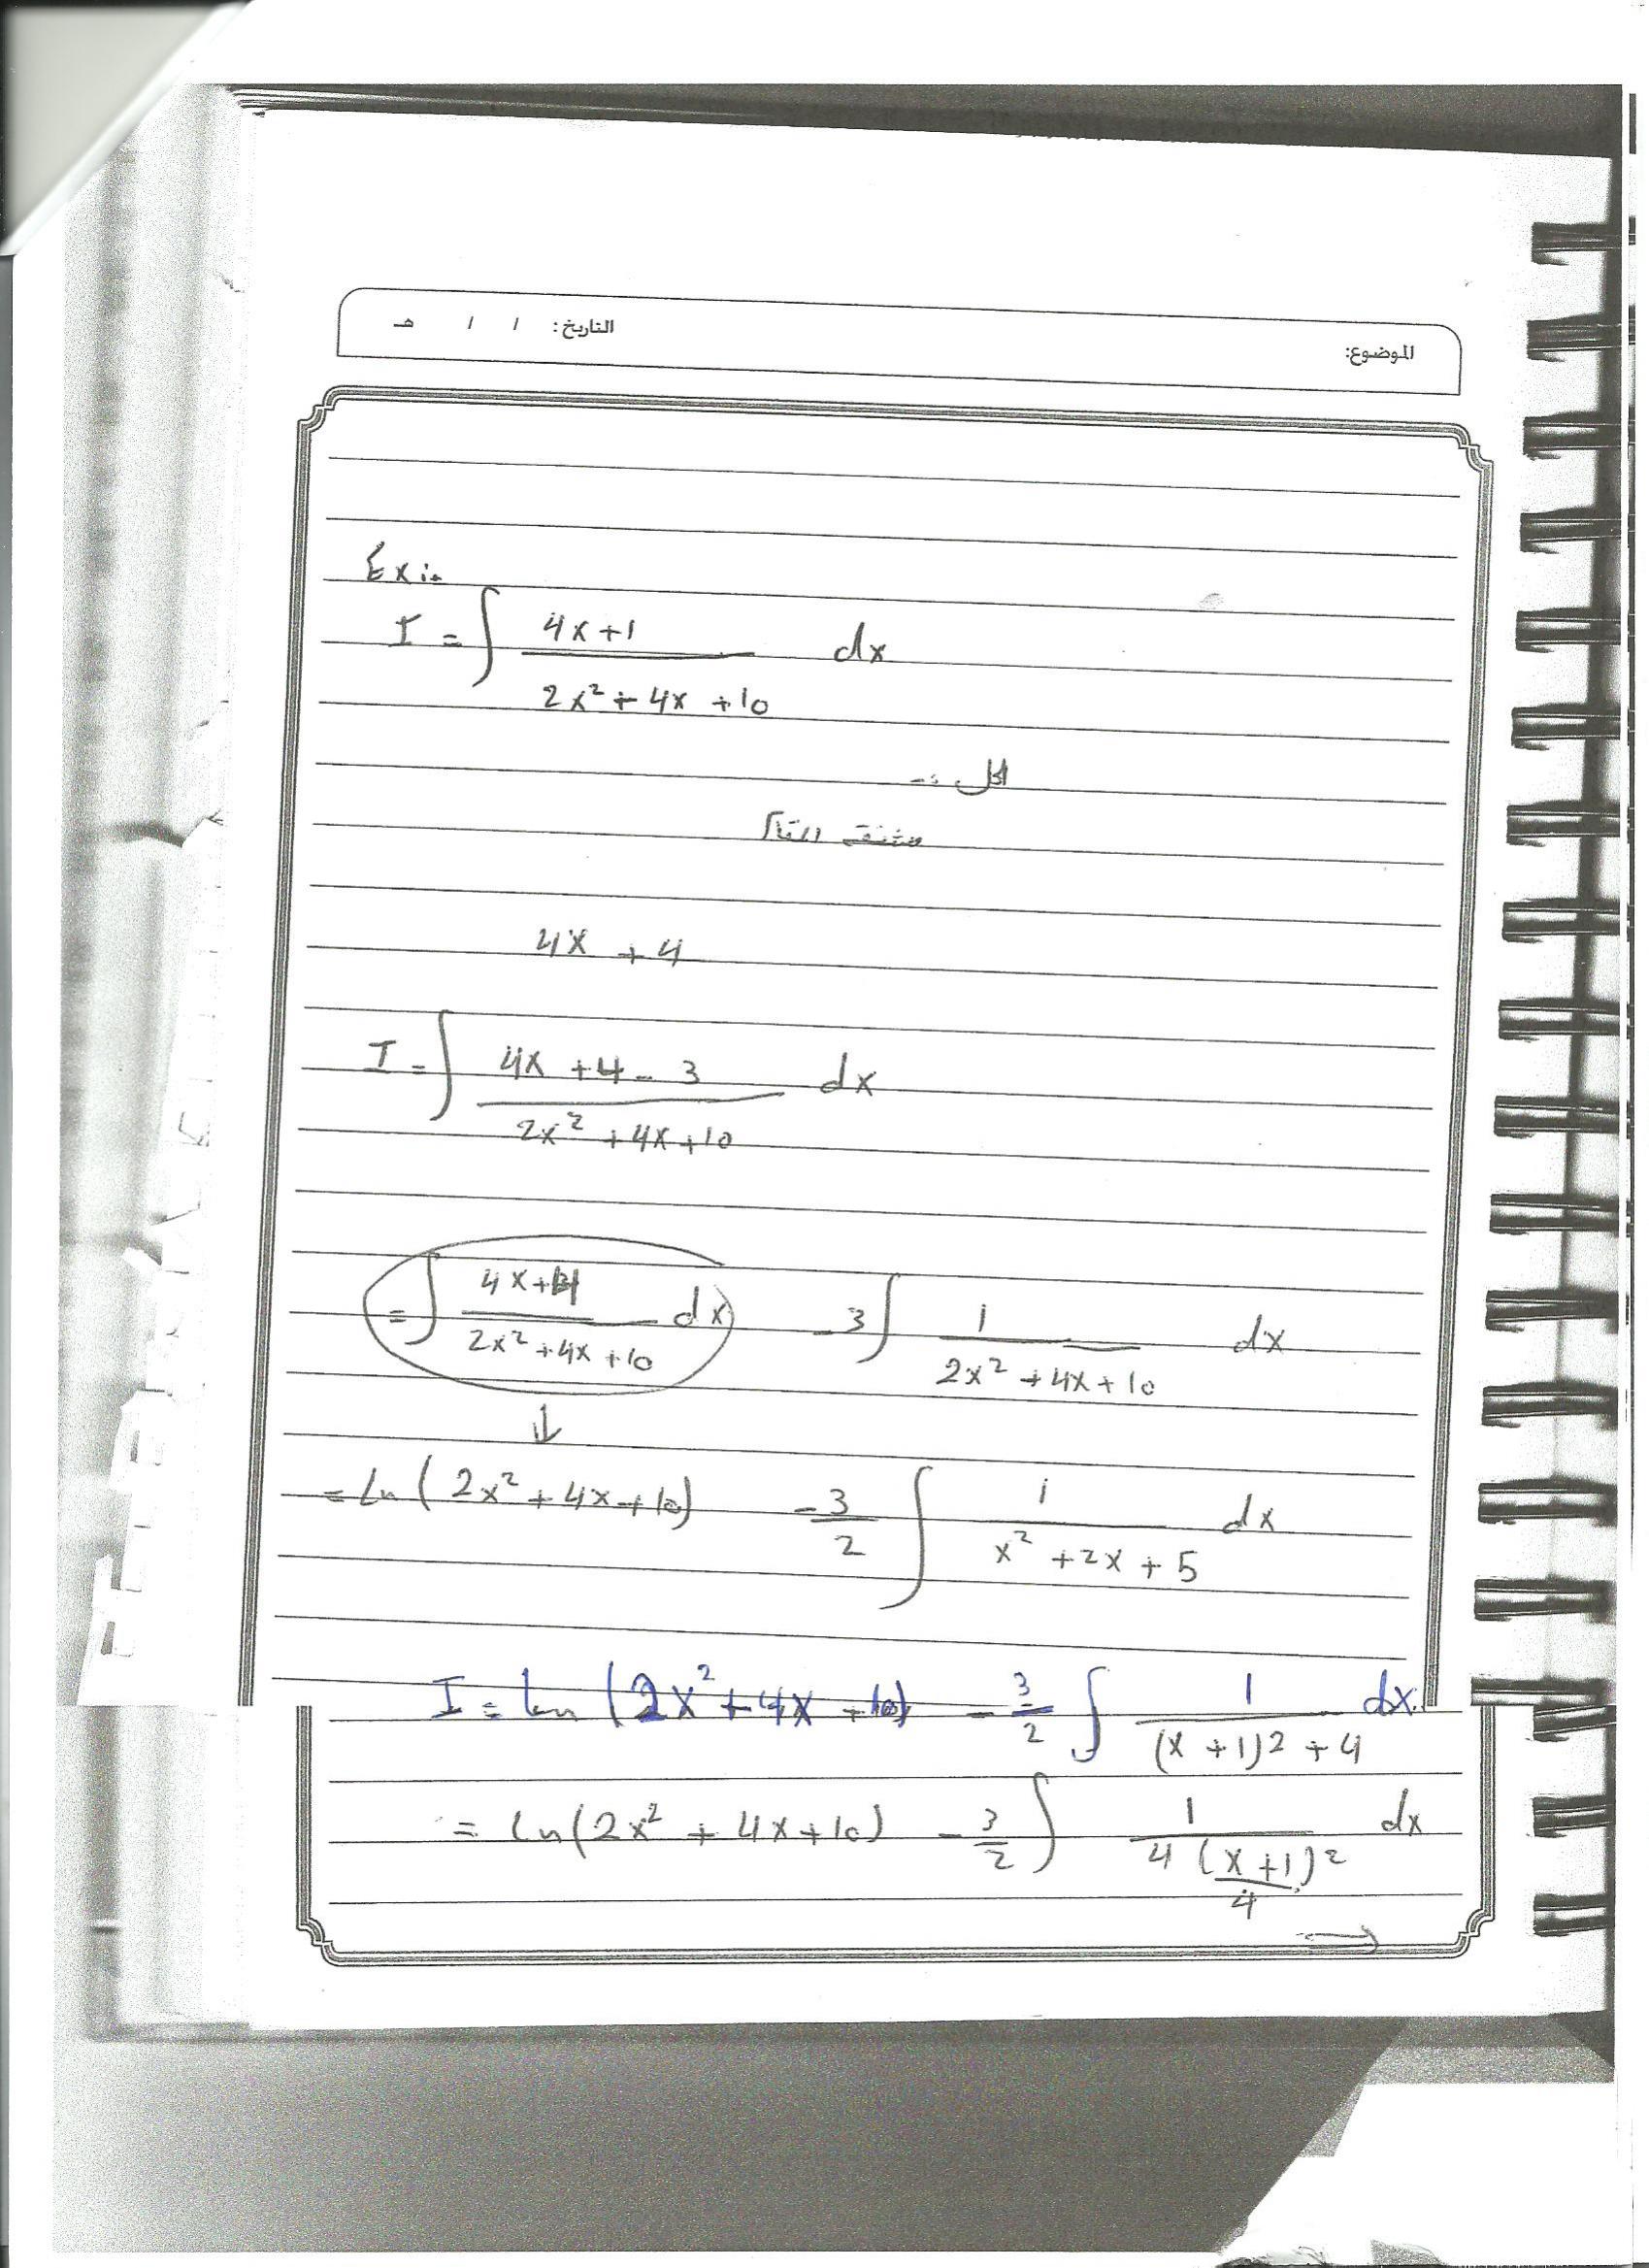 الموضوع:
التاريخ: / / هـ
Ex:-
I = ∫ (4x+1)/(2x² + 4x + 10) dx
الحل :-
مشتقة المقام
4x + 4
I = ∫ (4x + 4 - 3)/(2x² + 4x + 10) dx
= ∫ (4x+4)/(2x² + 4x + 10) dx - 3 ∫ 1/(2x² + 4x + 10) dx
↓
= ln (2x² + 4x + 10) - 3/2 ∫ 1/(x² + 2x + 5) dx
I = ln (2x² + 4x + 10) - 3/2 ∫ 1/((x + 1)2 + 4) dx
= ln(2x² + 4x + 10) - 3/2 ∫ 1/(4 (x+1)²/4) dx
→